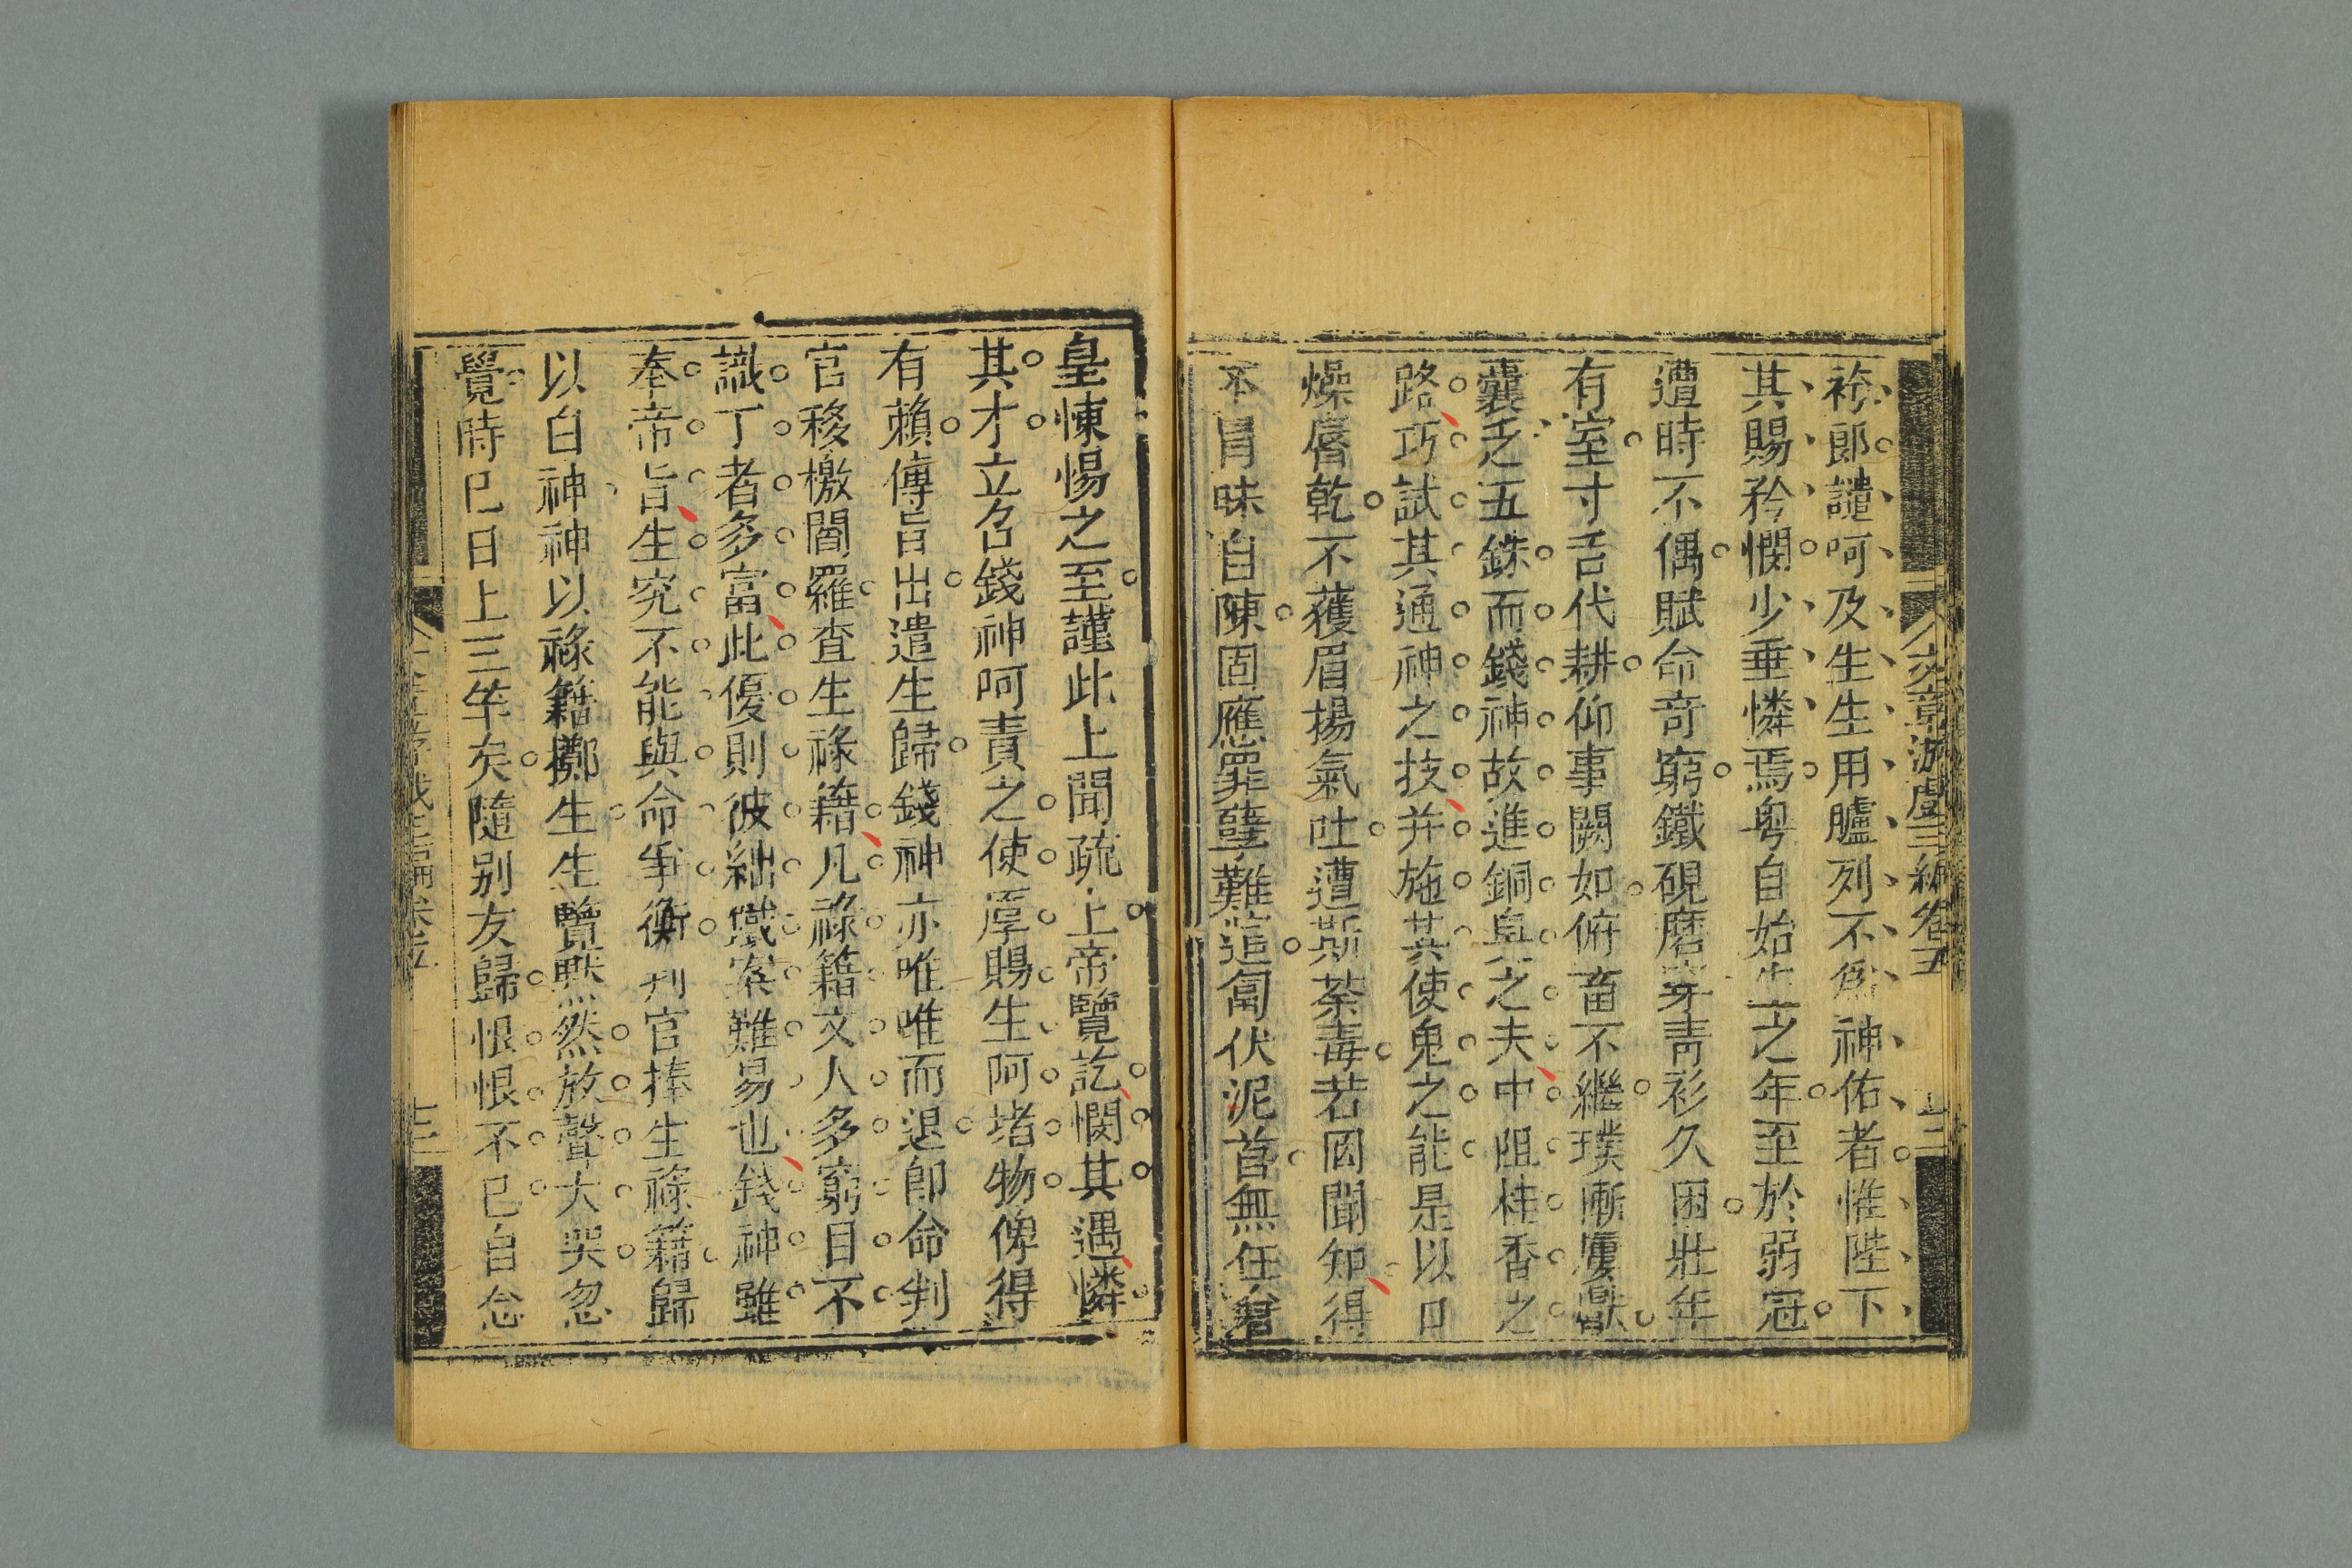 文章游戲三編卷五
袴郎譴呵及生生用臚列不為神佑者惟陛下
其賜矜憫少垂憐焉粤自始生之年至於弱冠
遭時不偶賦命奇窮鐵硯磨穿青衫久困壯年
有室寸舌代耕仰事闕如俯畜不繼璞慚屢獻
囊乏五銖而錢神故進銅臭之夫中阻桂香之
路巧試其通神之技并施其使鬼之能是以口
燥唇乾不獲眉揚氣吐遭斯荼毒若罔聞知得
不冒昧自陳固應罪孽難逭匐伏泥首無任
皇悚惕之至謹此上聞疏上帝覽訖憫其遇憐
其才立召錢神呵責之使厚賜生阿堵物俾得
有賴傳旨出遣生歸錢神亦唯唯而退即命判
官移檄閻羅查生祿籍凡祿籍文人多窮目不
識丁者多富此優則彼絀難易也錢神雖
奉帝旨生究不能與命爭衡判官捧生祿籍歸
以白神神以祿籍擲生生覽默然放聲大哭忽
覺時已日上三竿矣隨別友歸恨恨不已自念